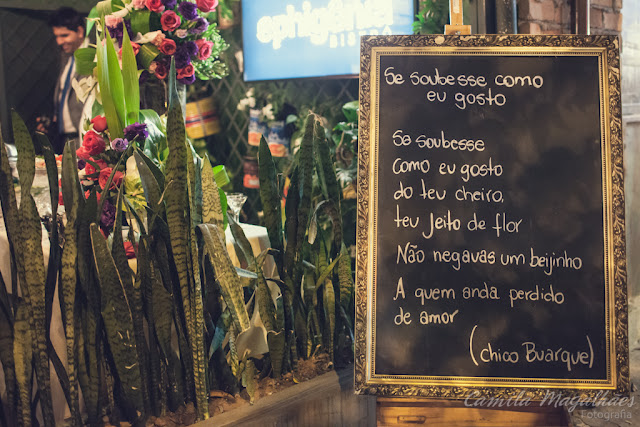 ephigênia
BISTRÔ
Se soubesse como
eu gosto
Se soubesse
como eu gosto
do teu cheiro,
teu Jeito de flor
Não negavas um beijinho
A quem anda perdido
de amor
(chico Buarque)
Camila Magalhães
Fotografia